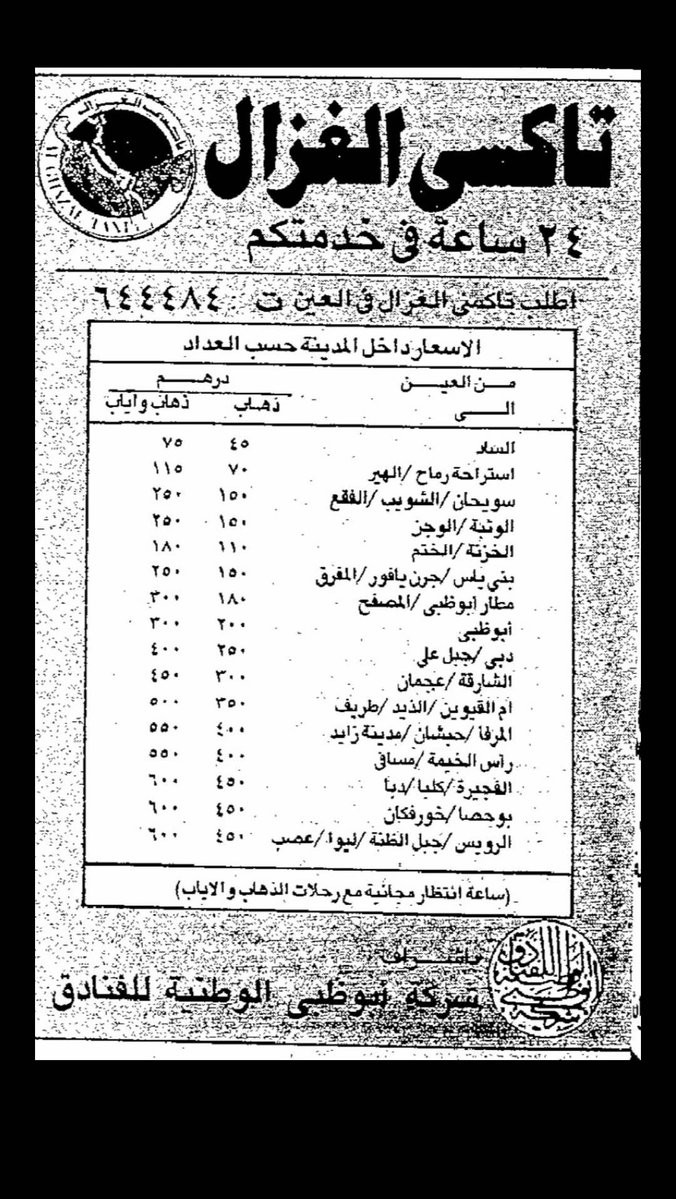 تاكسي الغزال
تاكسى الغزال
AL GHAZAL TAXI
٢٤ ساعة فى خدمتكم
اطلب تاكسى الغزال فى العين ت : ٦٤٤٤٨٤
الاسعار داخل المدينة حسب العداد
من العين درهم
الى ذهاب ذهاب واياب
الساد ٤٥ ٧٥
استراحة رماح /الهير ٧٠ ١١٥
سويحان /الشويب /الفقع ١٥٠ ٢٥٠
الوثبة /الوجن ١٥٠ ٢٥٠
الخزنة /الختم ١١٠ ١٨٠
بني ياس /جرن يافور /المفرق ١٥٠ ٢٥٠
مطار أبوظبى /المصفح ١٨٠ ٣٠٠
أبوظبى ٢٠٠ ٣٠٠
دبى /جبل على ٢٥٠ ٤٠٠
الشارقة /عجمان ٣٠٠ ٤٥٠
ام القيوين /الذيد /طريف ٣٥٠ ٥٠٠
المرفأ /حبشان /مدينة زايد ٤٠٠ ٥٥٠
رأس الخيمة /مسافى ٤٠٠ ٥٥٠
الفجيرة /كلبا /دبا ٤٥٠ ٦٠٠
بوحصا /خورفكان ٤٥٠ ٦٠٠
الرويس /جبل الظنة /ليوا /عصب ٤٥٠ ٦٠٠
(ساعة انتظار مجانية مع رحلات الذهاب والاياب)
باشراف
شركة أبوظبى الوطنية للفنادق